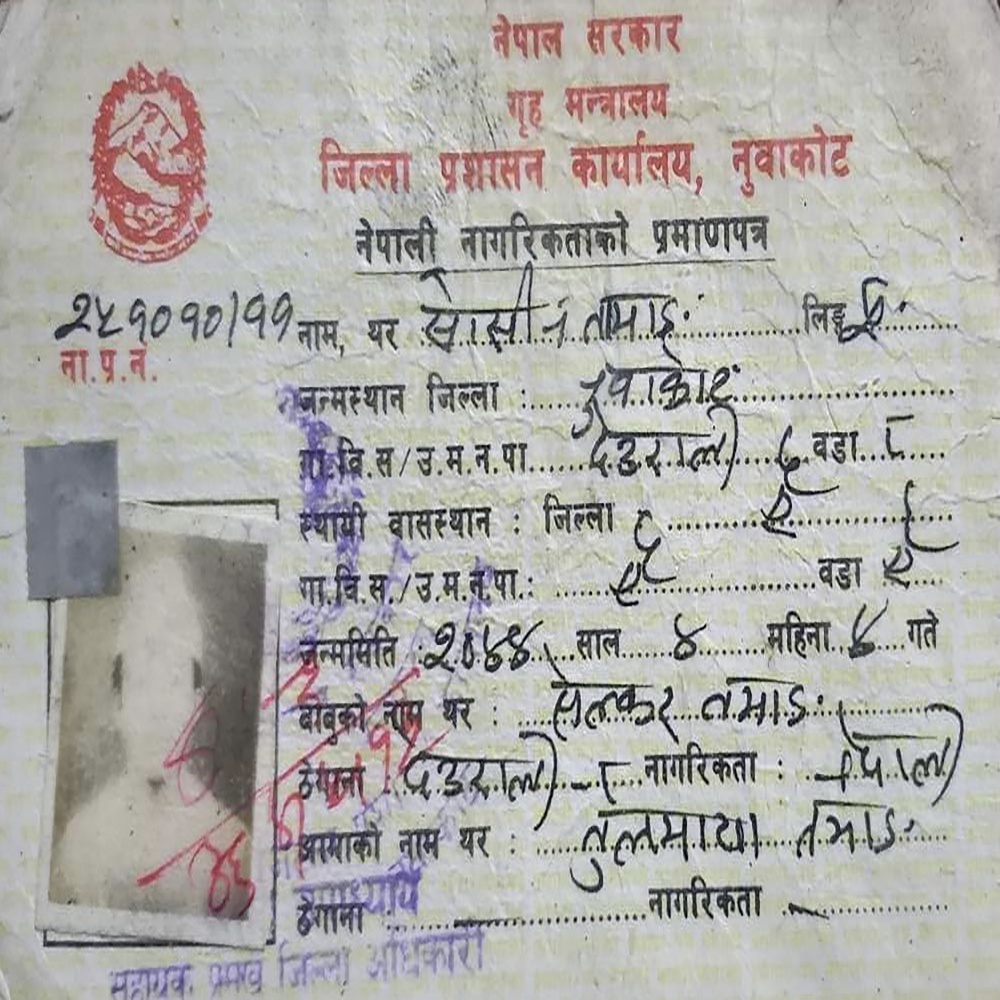 नेपाल सरकार
गृह मन्त्रालय
जिल्ला प्रशासन कार्यालय, नुवाकोट
नेपाली नागरिकताको प्रमाणपत्र
२५१०१०/११ नाम, थर तामाङ लिङ्ग
ना.प्र.न.
जन्मस्थान जिल्ला : नुवाकोट
गा.वि.स/उ.म.न.पा. देउराली वडा ८
स्थायी वासस्थान : जिल्ला
गा.वि.स./उ.म.न.पा.: वडा
जन्ममिति : २०४४ साल ४ महिना ४ गते
बाबुको नाम थर : तमाङ
ठेगाना : देउराली - ८ नागरिकता : नेपाली
आमाको नाम थर : तुलमाया तमाङ
ठेगाना : नागरिकता
उपाध्याय
सहायक प्रमुख जिल्ला अधिकारी